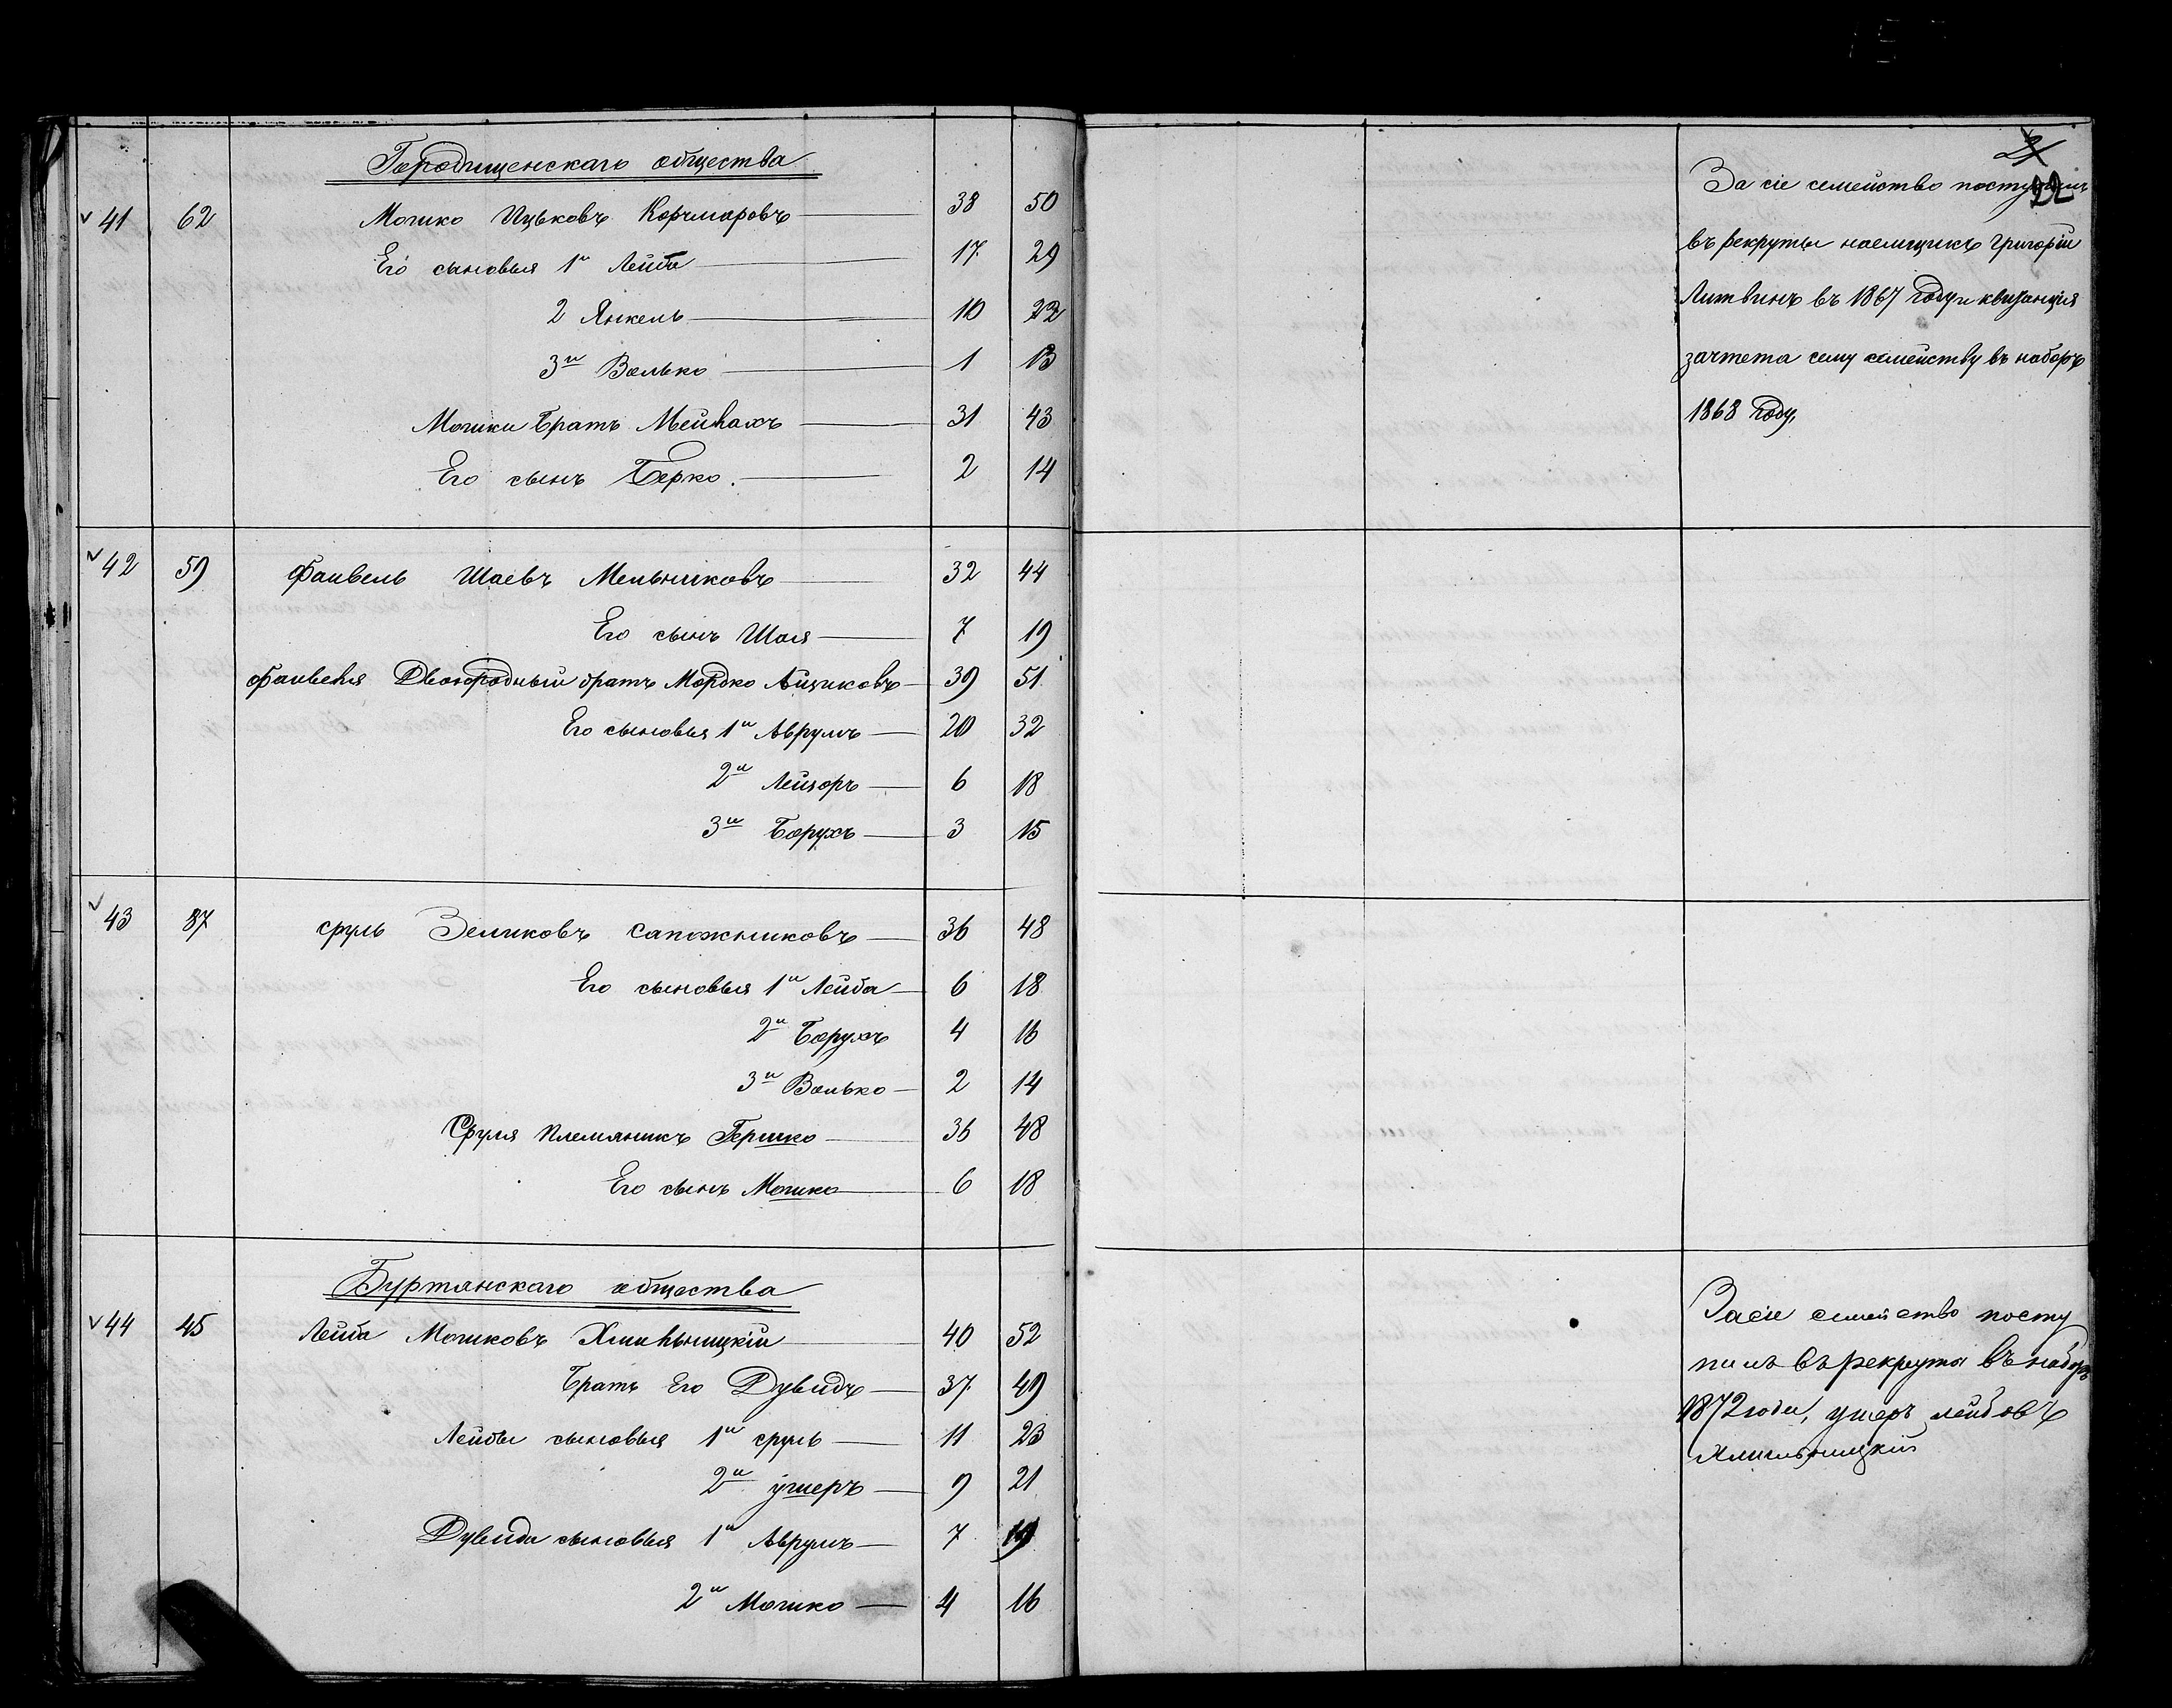 Городищенскаго общества
41 62 Мошко Ицьковъ Корчмаровъ 38 50
Его сыновья 1й Лейба 17 29
2 Янкель 10 22
3й Волько 1 13
Мошки братъ Мейлахъ 31 43
Его сынъ Берко. 2 14
42 59 Файвель Шаевъ Мельниковъ 32 44
Его сынъ Шая 7 19
Файвеля Двоюродный братъ Мордко Айзиковъ 39 51
Его сыновья 1й Аврумъ 20 32
2й Лейзоръ 6 18
3й Борухъ 3 15
43 87 Сруль Зеликовъ Сапожниковъ 36 48
Его сыновья 1й Лейба 6 18
2й Борухъ 4 16
3й Волько 2 14
Сруля Племяникъ Гершко 36 48
Его сынъ Мошко 6 18
Буртянскаго общества
44 45 Лейба Мошковъ Хмильницкій 40 52
Братъ Его Дувидъ 37 49
Лейбы сыновья 1й Сруль 11 23
2й Ушеръ 9 21
Дувида сыновья 1й Аврумъ 7 19
2й Мошко 4 16
21
22
За сіе семейство поступилъ
въ рекруты наемщикъ Григорій
Литвинъ въ 1867 году и квитанція
зачтета сему семейству въ наборъ
1868 году,
За сіе семейство посту
пилъ въ рекрута въ наборъ
1872 года, Ушеръ Лейбовъ
Хмильницкій